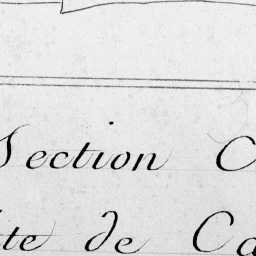 Section C
te de Ca